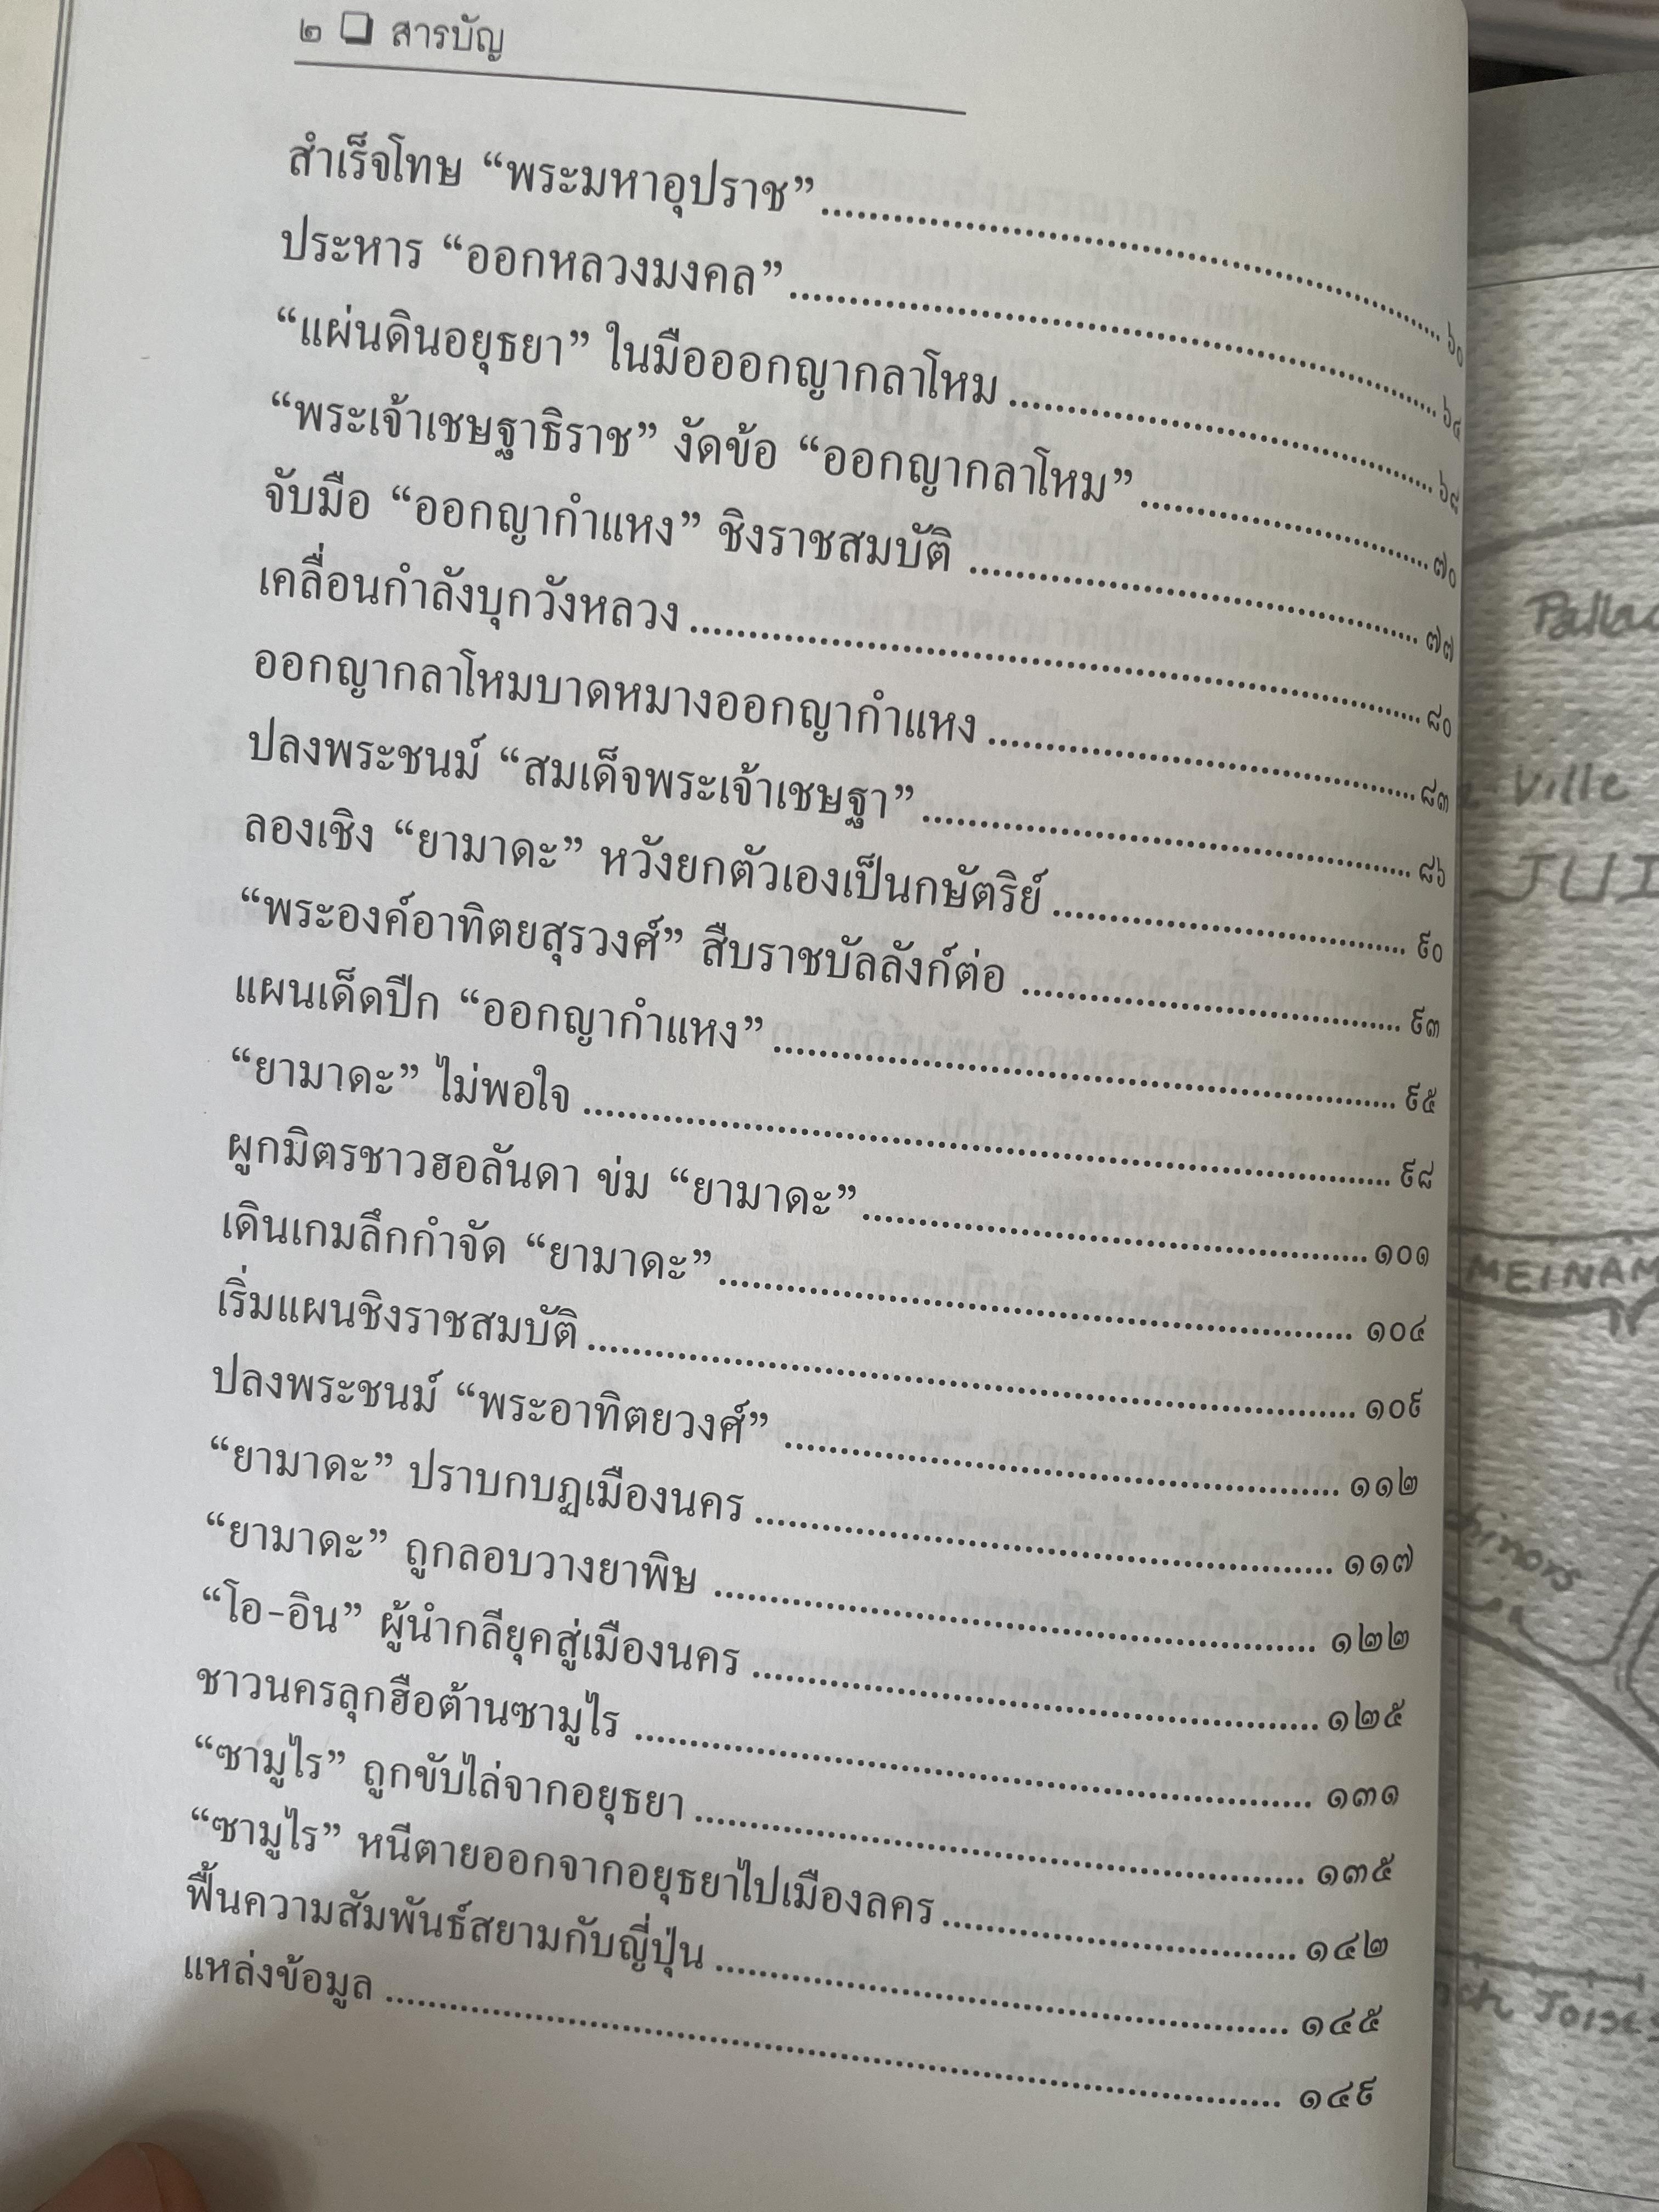 ๒ ❑ สารบัญ
สำเร็จโทษ “พระมหาอุปราช” ๖๐
ประหาร “ออกหลวงมงคล” ๖๔
“แผ่นดินอยุธยา” ในมือออกญากลาโหม ๖๙
“พระเจ้าเชษฐาธิราช” งัดข้อ “ออกญากลาโหม” ๗๐
จับมือ “ออกญากำแหง” ชิงราชสมบัติ ๗๗
เคลื่อนกำลังบุกวังหลวง ๘๐
ออกญากลาโหมบาดหมางออกญากำแหง ๘๓
ปลงพระชนม์ “สมเด็จพระเจ้าเชษฐา” ๘๖
ลองเชิง “ยามาดะ” หวังยกตัวเองเป็นกษัตริย์ ๙๐
“พระองค์อาทิตยสุรวงศ์” สืบราชบัลลังก์ต่อ ๙๓
แผนเด็ดปีก “ออกญากำแหง” ๙๕
“ยามาดะ” ไม่พอใจ ๙๘
ผูกมิตรชาวฮอลันดา ข่ม “ยามาดะ” ๑๐๑
เดินเกมลึกกำจัด “ยามาดะ” ๑๐๔
เริ่มแผนชิงราชสมบัติ ๑๐๙
ปลงพระชนม์ “พระอาทิตยวงศ์” ๑๑๒
“ยามาดะ” ปราบกบฏเมืองนคร ๑๑๗
“ยามาดะ” ถูกลอบวางยาพิษ ๑๒๒
“โอ-อิน” ผู้นำกลียุคสู่เมืองนคร ๑๒๕
ชาวนครลุกฮือต้านซามูไร ๑๓๑
“ซามูไร” ถูกขับไล่จากอยุธยา ๑๓๕
“ซามูไร” หนีตายออกจากอยุธยาไปเมืองลคร ๑๔๒
ฟื้นความสัมพันธ์สยามกับญี่ปุ่น ๑๔๕
แหล่งข้อมูล ๑๔๙
Ville
MEINAM